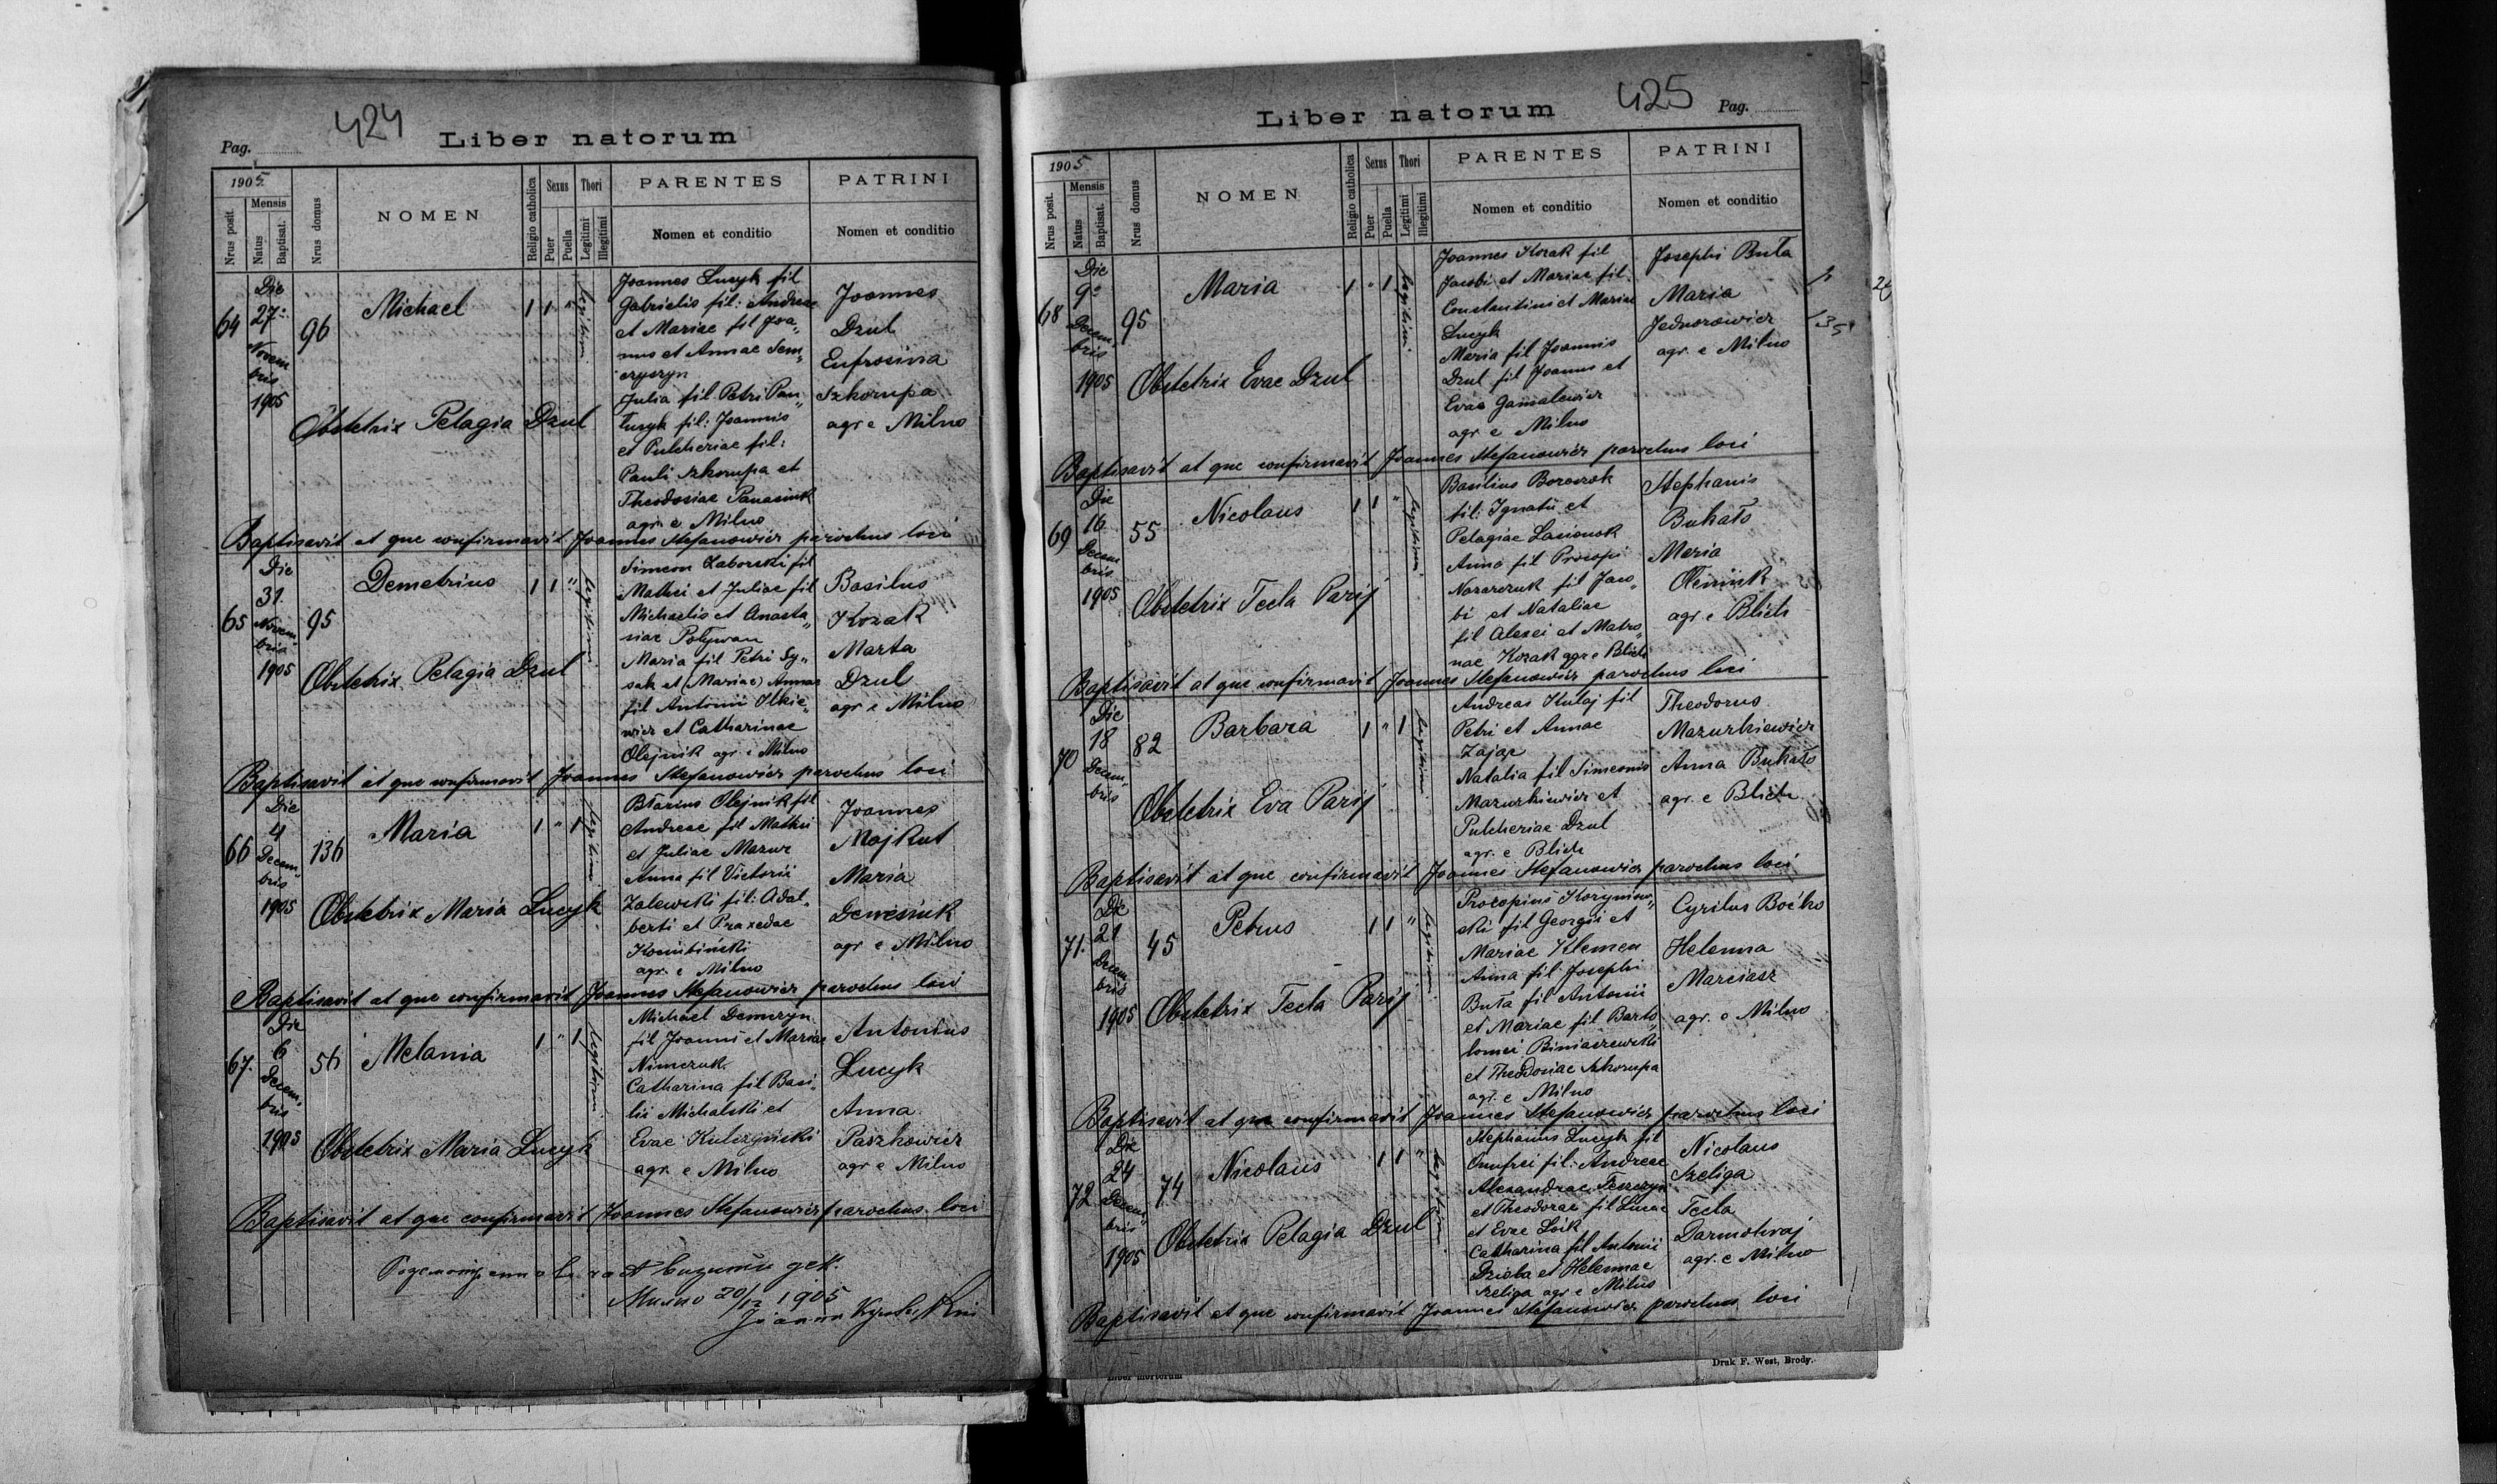 424
Pag.
Liber natorum
1905
Nrus posit.
Mensis
Natus
Baptisat.
Nrus domus
NOMEN
Religio catholica
Sexus
Puer
Puella
Thori
Legitimi
Illegitimi
PARENTES
Nomen et conditio
PATRINI
Nomen et conditio
64
Die
27
Novem
bris
1905
96
Michael
1 1 "
legitimi
Obstetrix Pelagia Dzul
Joannes Lucyk fil
Gabrielis fil: Andreae
et Mariae fil Joa„
nnis et Annae Dem„
czyszyn
Julia fil Petri Pan„
tucyk fil: Joannis
et Pulcheriae fil:
Pauli Szkorupa et
Theodosiae Panasiuk
agr. e Milno
Joannes
Dzul
Eufrosina
Szkorupa
agr e Milno
Baptisavit at que confirmavit Joannes Stefanowicz parochus loci
65
Die
31.
Novem„
bris
1905
95
Demetrius
1 1 "
legitimi
Obstetrix Pelagia Dzul
Simeon Zaborski fil
Mathei et Juliae fil
Michaelis et Anasta„
siae Polywan
Maria fil Petri Sy„
sak et (Mariae) Annae
fil Antonii Ilkie„
wicz et Catharinae
Olejnik agr. e Milno
Basilus
Kozak
Marta
Dzul
agr e Milno
Baptisavit at que confirmavit Joannes Stefanowicz parochus loci
66
Die
4
Decem„
bris
1905
136
Maria
1 " 1
legitimi
Obstetrix Maria Lucyk
Olejnik fil
Andreae fil Mathei
et Juliae Mazur
Anna fil Victorii
Zalewski fil: Adal„
berti et Praxedae
agr. e Milno
Joannes
Majkut
Maria
agr e Milno
Baptisavit at que confirmavit Joannes Stefanowicz parochus loci
67.
Die
6
Decem„
bris
1905
56
Melania
1 " 1
legitimi
Obstetrix Maria Lucyk
Michael Demczyn
fil Joannis et Mariae
Nimczuk.
Catharina fil Basi„
lii Michalski et
Evae Kulczyński
agr. e Milno
Antonius
Lucyk
Anna
Paszkowicz
agr e Milno
Baptisavit at que confirmavit Joannes Stefanowicz parochus loci
Милно 20/12 1905
425
Liber natorum
Pag.
1905
Nrus posit.
Mensis
Natus
Baptisat.
Nrus domus
NOMEN
Religio catholica
Sexus
Puer
Puella
Thori
Legitimi
Illegitimi
PARENTES
Nomen et conditio
PATRINI
Nomen et conditio
68
Die
9
Decem„
bris
1905
95
Maria
1 " 1
legitimi
Obstetrix Evae Dzul
Joannes Kozak fil
Jacobi et Mariae fil.
Constantini et Mariae
Lucyk
Maria fil Joannis
Dzul fil Joannis et
Evae Gamalewicz
agr e Milno
Josephi Buła
Maria
Jednorowicz
agr. e Milno
Baptisavit at que confirmavit Joannes Stefanowicz parochus loci
69
Die
16
Decem
bris
1905
55
Nicolaus
1 1 "
legitimi
Obstetrix Tecla Parij
Basilius Boroczok
fil: Ignatii et
Pelagiae Lasionok
Anna fil Procopi
Nazarczuk fil Jaco„
bi et Nataliae
fil Alexei et Matro„
nae Kozak agr e Blich
Stephanis
Bukało
Maria
Olejniuk
agr e Blich
Baptisavit at que confirmavit Joannes Stefanowicz parochus loci
70
Die
18
Decem„
bris
82
Barbara
1 " 1
legitimi
Obstetrix Eva Parij
Andreas Kulaj fil
Petri et Annae
Zając
Natalia fil Simeonis
Mazurkiewicz et
Pulcheriae Dzul
agr. e Blich
Theodorus
Mazurkiewicz
Anna Bukało
agr. e Blich
Baptisavit at que confirmavit Joannes Stefanowicz parochus loci
71.
Die
21
Decem
bris
1905
45
Petrus
1 1 "
legitimi
Obstetrix Tecla Parij
Procopius Koryniow„
ski fil Georgii et
Mariae Klemen
Anna fil Josephi
Buła fil Antonii
et Mariae fil Barto„
lomei Biniaszewski
et Theodosiae Szkorupa
agr. e Milno
Cyrilus Boćko
Helenna
Marciasz
agr. e Milno
Baptisavit at que confirmavit Joannes Stefanowicz parochus loci
72
Die
24
Decem„
bris
1905
74
Nicolaus
1 1 "
legitimi
Obstetrix Pelagia Dzul
Stephanus Lucyk fil
Onufrei fil: Andreae
Alexandrae Teszczyn
et Theodorae fil Lucae
et Evae Łoik
Catharina fil Antonii
Dzioba et Helennae
Szeliga agr e Milno
Nicolaus
Szeliga
Tecla
Darmohraj
agr. e Milno
Baptisavit at que confirmavit Joannes Stefanowicz parochus loci
Druk F. West, Brody.
Liber mortorum